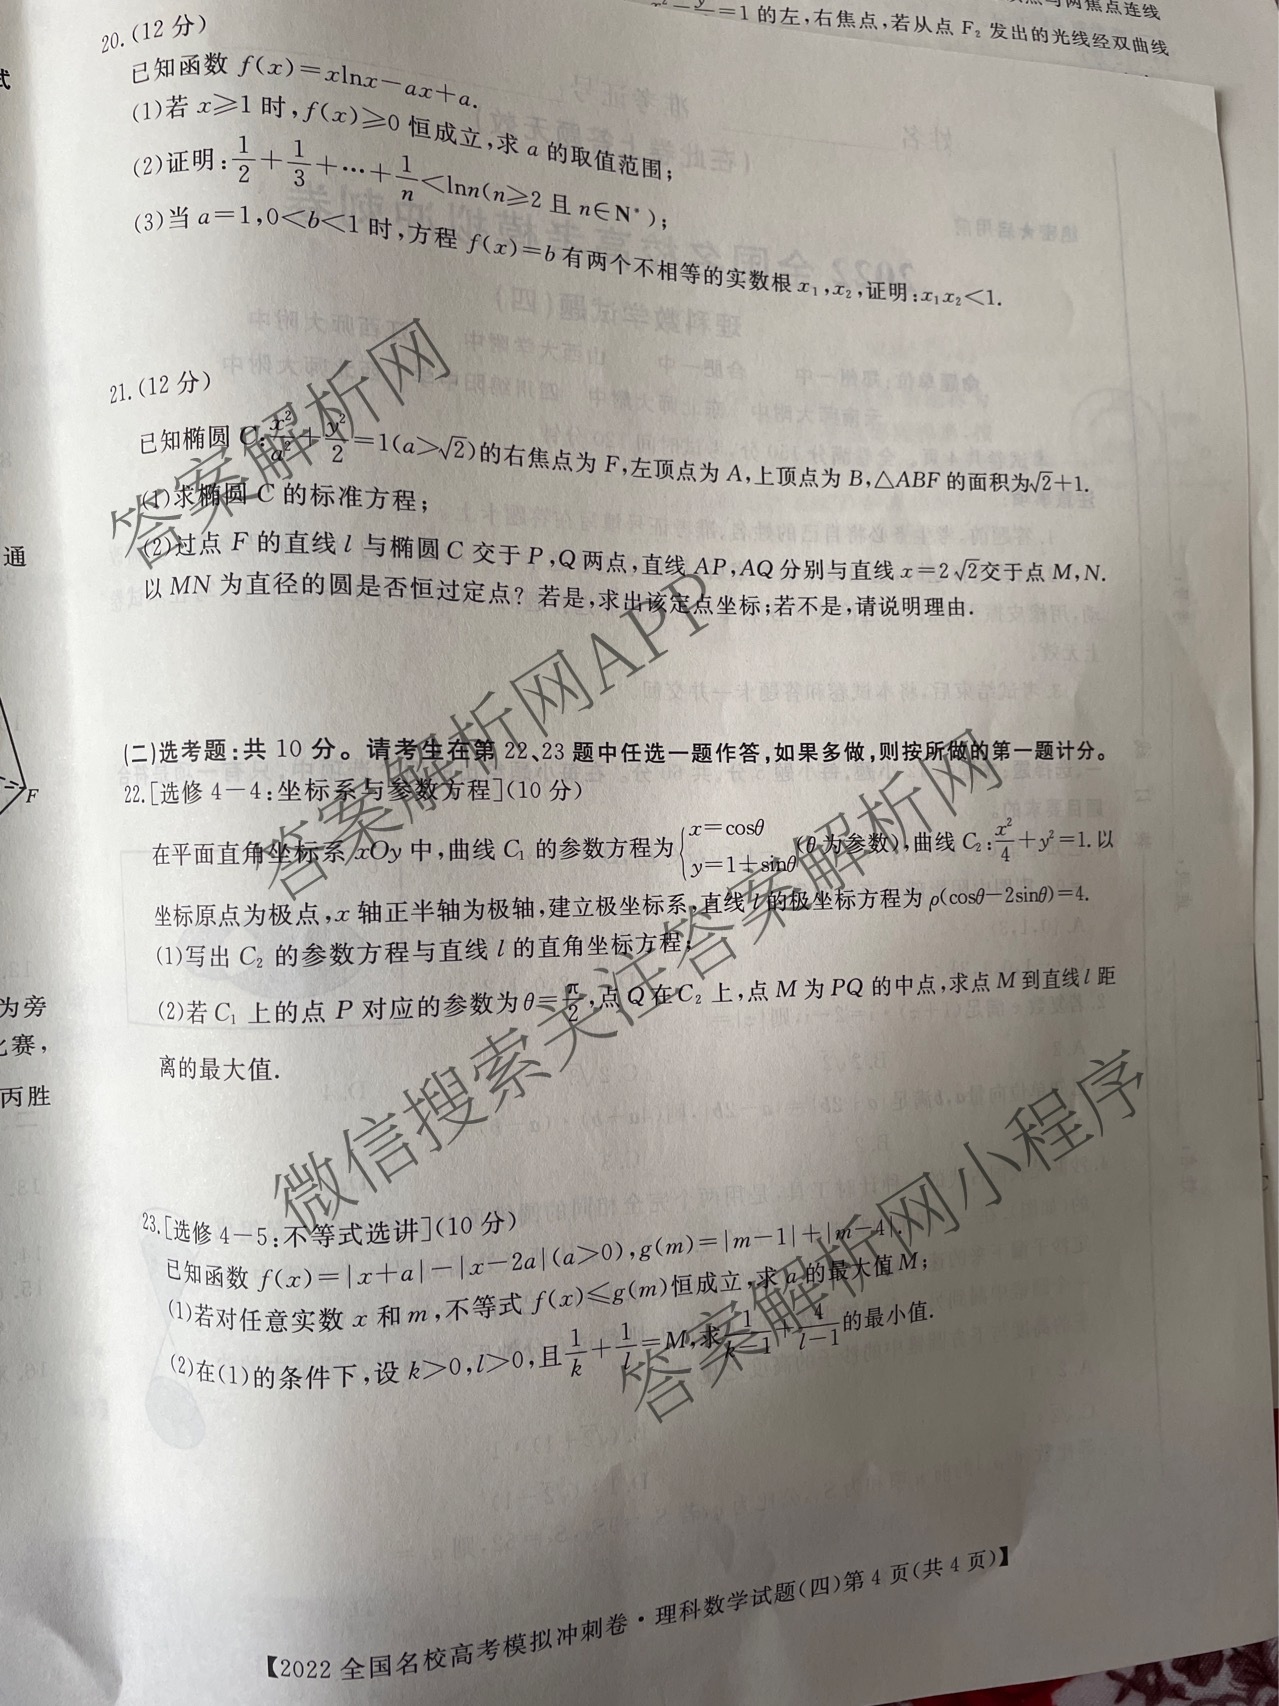 顶点与两焦点连线
=1的左,右焦点,若从点F₂发出的光线经双曲线
20.(12分)
已知函数 f(x)=xlnx-ax+a.
(1)若 x≥1 时,f(x)≥0 恒成立,求 a 的取值范围;
(2)证明:1/2+1/3+…+1/n<lnn(n≥2 且 n∈N*);
(3)当 a=1,0<b<1 时,方程 f(x)=b 有两个不相等的实数根 x₁,x₂,证明:x₁x₂<1.
21.(12分)
已知椭圆 C:x²/a²+y²/2=1(a>√2)的右焦点为 F,左顶点为 A,上顶点为 B,△ABF 的面积为√2+1.
(1)求椭圆 C 的标准方程;
(2)过点 F 的直线 l 与椭圆 C 交于 P,Q 两点,直线 AP,AQ 分别与直线 x=2√2交于点 M,N.
以 MN 为直径的圆是否恒过定点? 若是,求出该定点坐标;若不是,请说明理由.
(二)选考题:共 10 分。请考生在第 22、23 题中任选一题作答,如果多做,则按所做的第一题计分。
22.[选修 4-4:坐标系与参数方程](10 分)
在平面直角坐标系 xOy 中,曲线 C₁ 的参数方程为{x=cosθ y=1+sinθ(θ为参数),曲线 C₂:x²/4+y²=1.以
坐标原点为极点,x 轴正半轴为极轴,建立极坐标系,直线 l 的极坐标方程为 ρ(cosθ-2sinθ)=4.
(1)写出 C₂ 的参数方程与直线 l 的直角坐标方程;
(2)若 C₁ 上的点 P 对应的参数为 θ=π/2,点 Q 在 C₂ 上,点 M 为 PQ 的中点,求点 M 到直线 l 距
离的最大值.
23.[选修 4-5:不等式选讲](10 分)
已知函数 f(x)=|x+a|-|x-2a|(a>0),g(m)=|m-1|+|m-4|.
(1)若对任意实数 x 和 m,不等式 f(x)≤g(m)恒成立,求 a 的最大值 M;
(2)在(1)的条件下,设 k>0,l>0,且1/k+1/l=M,求1/(k-1)+4/(l-1)的最小值.
【2022 全国名校高考模拟冲刺卷·理科数学试题(四)第 4 页(共 4 页)】
式
通
F
为旁
比赛,
丙胜
答案解析网
答案解析网APP
微信搜索关注答案解析网
答案解析网小程序